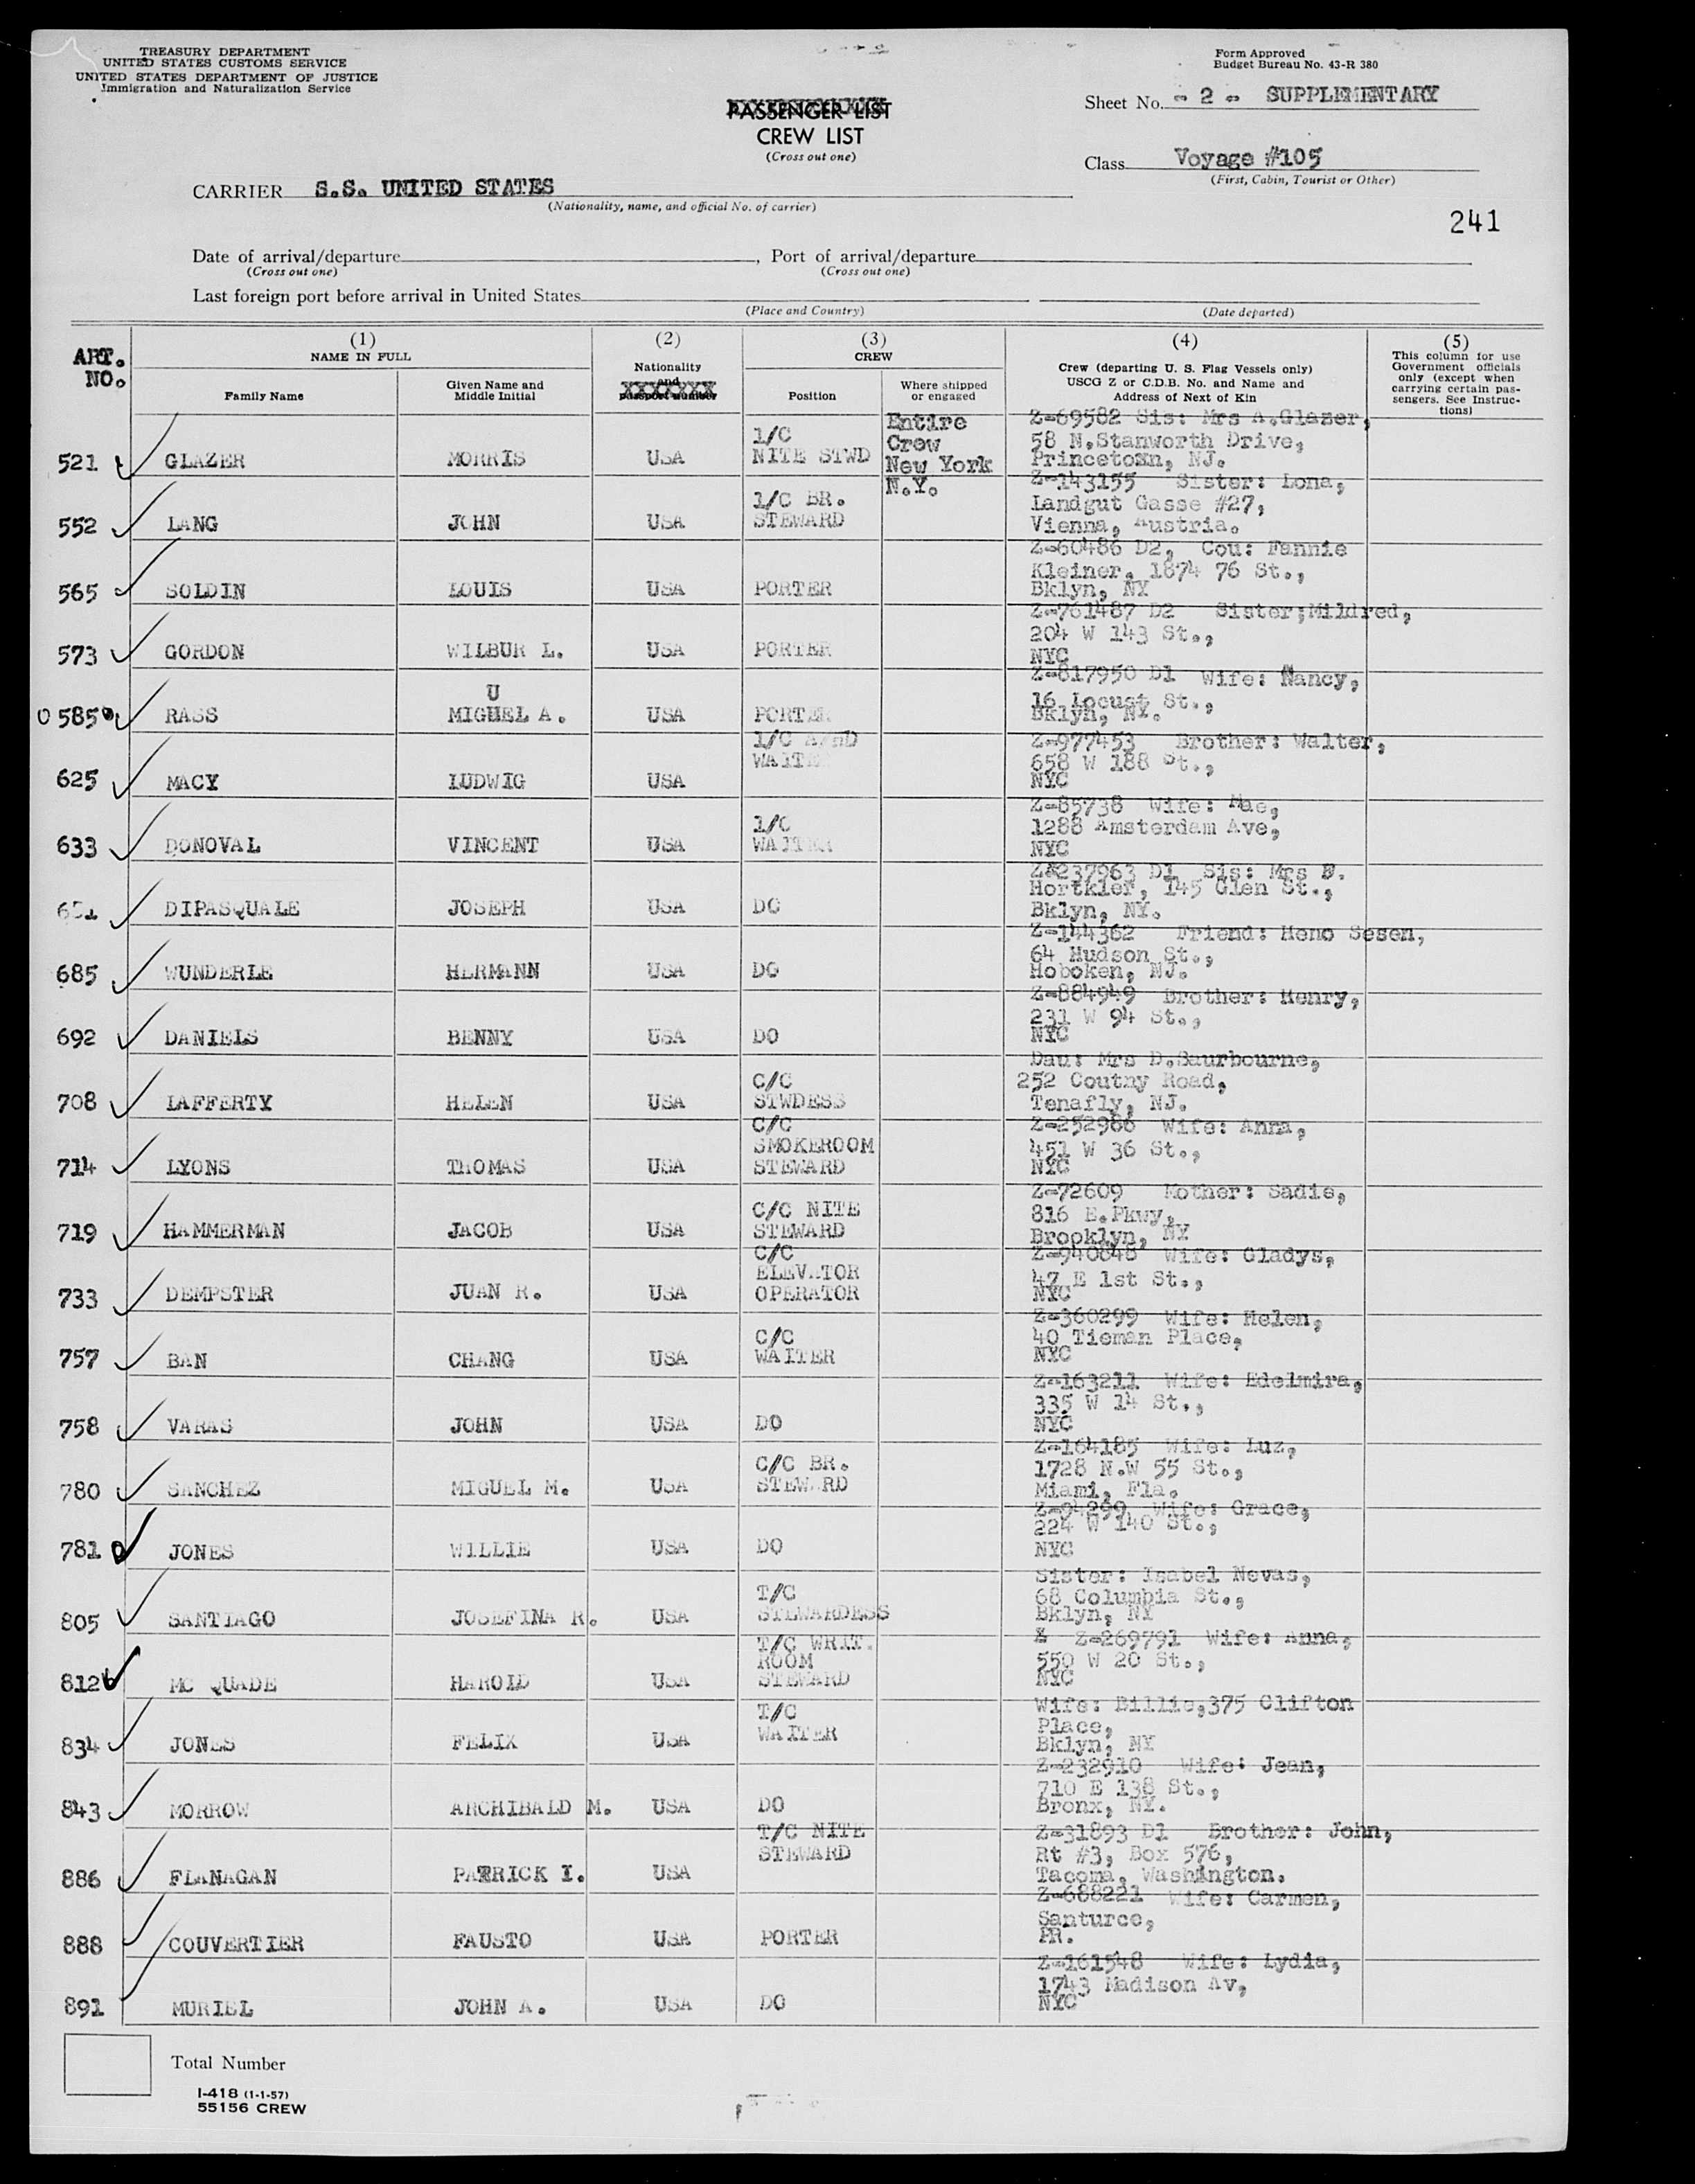 TREASURY DEPARTMENT
UNITED STATES CUSTOMS SERVICE
UNITED STATES DEPARTMENT OF JUSTICE
Immigration and Naturalization Service
Form Approved
Budget Bureau No. 43-R 380
PASSENGER LIST
CREW LIST
(Cross out one)
Sheet No. - 2 - SUPPLEMENTARY
Class Voyage #105
(First, Cabin, Tourist or Other)
CARRIER S.S. UNITED STATES
(Nationality, name, and official No. of carrier)
241
Date of arrival/departure, Port of arrival/departure
(Cross out one) (Cross out one)
Last foreign port before arrival in United States
(Place and Country) (Date departed)
ART. NO.
(1)
NAME IN FULL
Family Name
Given Name and
Middle Initial
(2)
Nationality
and
passport number
(3)
CREW
Position
Where shipped
or engaged
(4)
Crew (departing U. S. Flag Vessels only)
USCG Z or C.D.B. No. and Name and
Address of Next of Kin
(5)
This column for use
Government officials
only (except when
carrying certain pas-
sengers. See Instruc-
tions)
Entire
Crew
New York
N.Y.
521 GLAZER MORRIS USA 1/C NITE STWD Z-69582 Sis: Mrs A.Glazer,
58 N.Stanworth Drive,
Princeton, NJ.
552 LANG JOHN USA 1/C BR. STEWARD Z-143155 Sister: Lona,
Landgut Gasse #27,
Vienna, Austria.
565 SOLDIN LOUIS USA PORTER Z-60486 D2, Cou: Fannie
Kleiner, 1874 76 St.,
Bklyn, NY
573 GORDON WILBUR L. USA PORTER Z-761487 D2 Sister;Mildred,
204 W 143 St.,
NYC
U
585 RASS MIGUEL A. USA PORTER Z-817950 D1 Wife: Nancy,
16 Locust St.,
Bklyn, NY.
625 MACY LUDWIG USA 1/C WAITE Z-977453 Brother: Walter,
658 W 188 St.,
NYC
633 DONOVAL VINCENT USA 1/C WAITER Z-85738 Wife: Mae,
1288 Amsterdam Ave,
NYC
651 DIPASQUALE JOSEPH USA DO Z-237963 D1 Sis: Mrs
Hortkler, 145 Glen St.,
Bklyn, NY.
685 WUNDERLE HERMANN USA DO Z-144362 Friend: Heno Sesen,
64 Hudson St.,
Hoboken, NJ.
692 DANIELS BENNY USA DO Z-884949 Brother: Henry,
231 W 94 St.,
NYC
708 LAFFERTY HELEN USA C/C STWDESS Dau: Mrs D.Saurbourne,
252 Coutny Road,
Tenafly, NJ.
714 LYONS THOMAS USA C/C SMOKEROOM STEWARD Z-252966 Wife: Anna,
451 W 36 St.,
NYC
719 HAMMERMAN JACOB USA C/C NITE STEWARD Z-72609 Mother: Sadie,
816 E.Pkwy,
Brooklyn, NY
733 DEMPSTER JUAN R. USA C/C ELEVATOR OPERATOR Z-940848 Wife: Gladys,
47 E 1st St.,
NYC
757 BAN CHANG USA C/C WAITER Z-360299 Wife: Helen,
40 Tieman Place,
NYC
758 VARAS JOHN USA DO Z-163211 Wife: Edelmira,
335 W 14 St.,
NYC
780 SANCHEZ MIGUEL M. USA C/C BR. STEWARD Z-164185 Wife: Luz,
1728 N.W 55 St.,
Miami, Fla.
781 JONES WILLIE USA DO Z-94299 Wife: Grace,
224 W 140 St.,
NYC
805 SANTIAGO JOSEFINA R. USA T/C STEWARDESS Sister: Isabel Nevas,
68 Columbia St.,
Bklyn, NY
812 MC QUADE HAROLD USA T/C WRIT. ROOM STEWARD Z-269791 Wife: Anna,
550 W 20 St.,
NYC
834 JONES FELIX USA T/C WAITER Wife: Billie,375 Clifton
Place,
Bklyn, NY
843 MORROW ARCHIBALD M. USA DO Z-232910 Wife: Jean,
710 E 138 St.,
Bronx, NY.
886 FLANAGAN PATRICK I. USA T/C NITE STEWARD Z-31893 D1 Brother: John,
Rt #3, Box 576,
Tacoma, Washington.
888 COUVERTIER FAUSTO USA PORTER Z-688221 Wife: Carmen,
Santurce,
PR.
891 MURIEL JOHN A. USA DO Z-161548 Wife: Lydia,
1743 Madison Av,
NYC
Total Number
I-418 (1-1-57)
55156 CREW